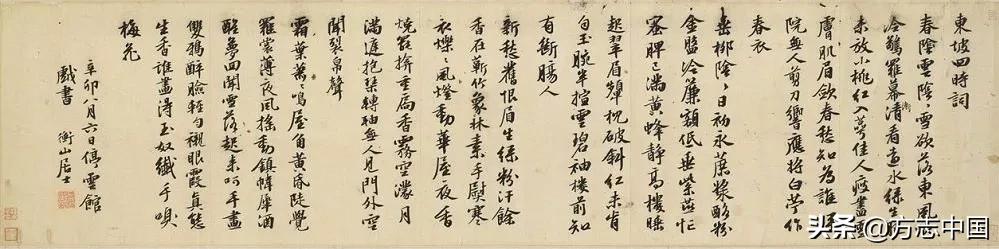 東坡四時詞
春陰雲陰雪欲落東風
冷驚羅幕看遠水綠生漪
未放小桃紅入萼佳人瘦盡雪
膚肌眉斂春愁知為誰深
院無人剪刀響應將白苧作
春衣
垂柳陰〻日初永蔗漿酪粉
金盤冷簾額低垂紫燕忙
蜜脾已滿黃蜂靜高樓睡
起翠眉顰枕破斜紅未肯
勻玉腕半揎雲碧袖樓前知
有斷腸人
新愁舊恨眉生綠粉汗餘
香在蘄竹象床素手熨寒
衣爍〻風燈動華屋夜香
燒罷掩重扃香霧空濛月
滿庭抱琴轉軸無人見門外空
聞裂帛聲
霜葉蕭〻鳴屋角黃昏陡覺
羅裳薄夜風搖動鎮幃犀酒
醒夢回聞雪落起來呵手畫
雙鴉醉臉輕勻襯眼霞真態
生香誰畫得玉奴纖手嗅
梅花
辛卯八月六日停雲館
戲書 衡山居士
头条 @方志中国